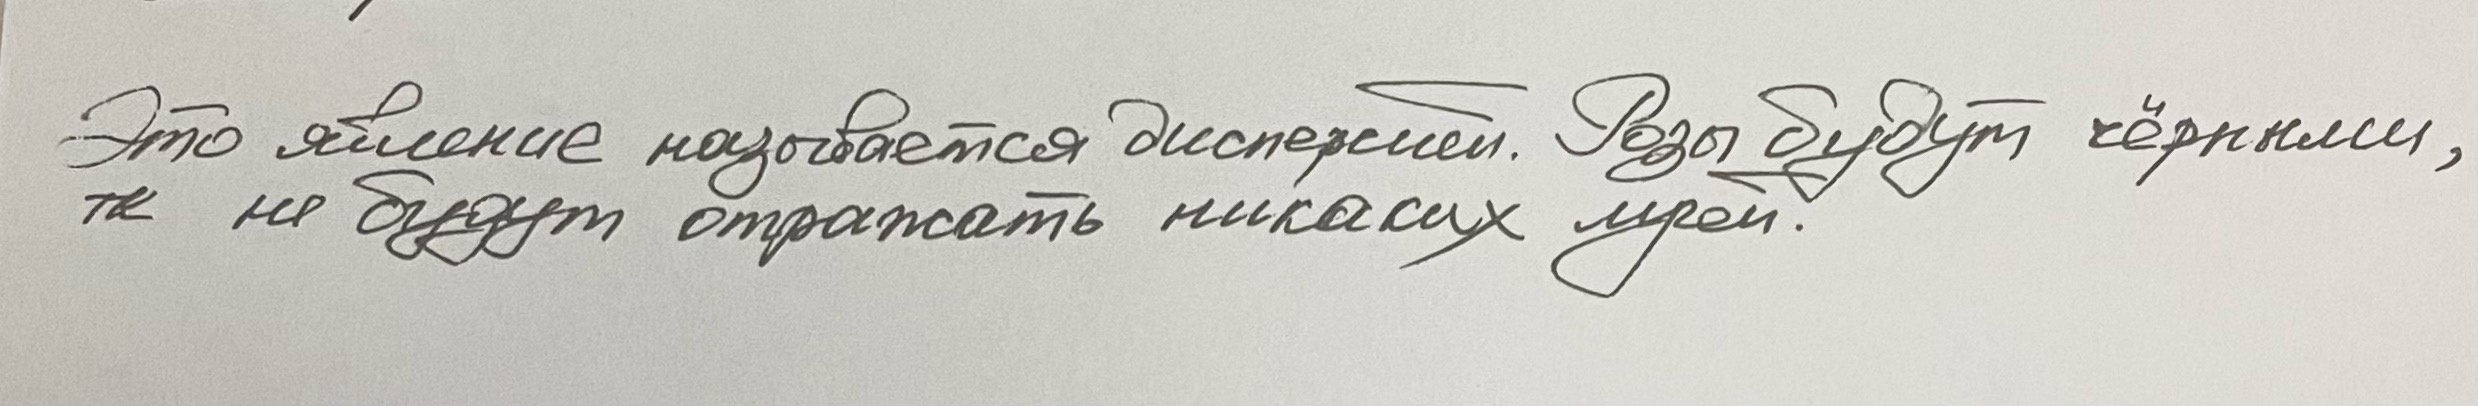 Это явление называется дисперсией. Розы будут чёрными,
тк не будут отражать никаких лучей.